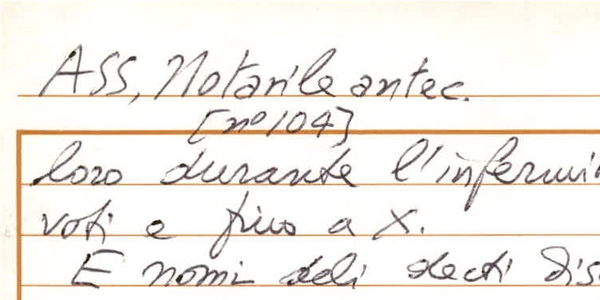 ASS, Notarile antec.
[nº 104]
loro durante l'infermi
voti e fino a X.
E nomi deli decti dis